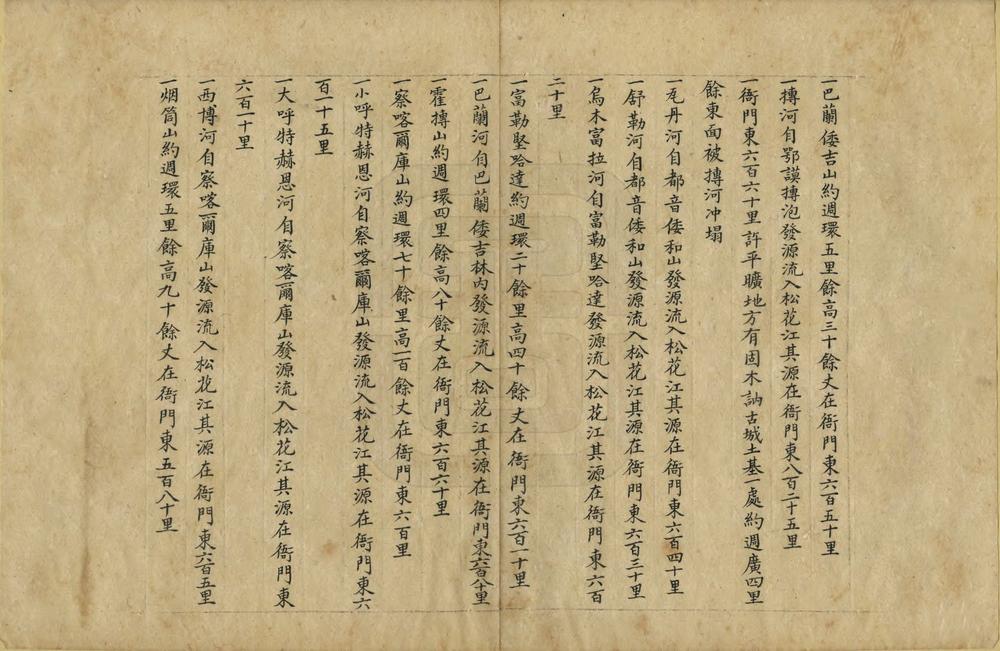 一巴蘭倭吉山約週環五里餘高三十餘丈在衙門東六百五十里
一摶河自鄂謨摶泡發源流入松花江其源在衙門東八百二十五里
一衙門東六百六十里許平曠地方有固木訥古城土基一處約週廣四里
餘東面被摶河冲塌
一瓦丹河自都音倭和山發源流入松花江其源在衙門東六百四十里
一舒勒河自都音倭和山發源流入松花江其源在衙門東六百三十里
一烏木富拉河自富勒堅哈達發源流入松花江其源在衙門東六百
二十里
一富勒堅哈達約週環二十餘里高四十餘丈在衙門東六百一十里
一巴蘭河自巴蘭倭吉林內發源流入松花江其源在衙門東六百八十里
一霍摶山約週環四里餘高八十餘丈在衙門東六百六十里
一察喀爾庫山約週環七十餘里高一百餘丈在衙門東六百里
一小呼特赫恩河自察喀爾庫山發源流入松花江其源在衙門東六
百一十五里
一大呼特赫恩河自察喀爾庫山發源流入松花江其源在衙門東
六百一十里
一西博河自察喀爾庫山發源流入松花江其源在衙門東六百五里
一烟筒山約週環五里餘高九十餘丈在衙門東五百八十里